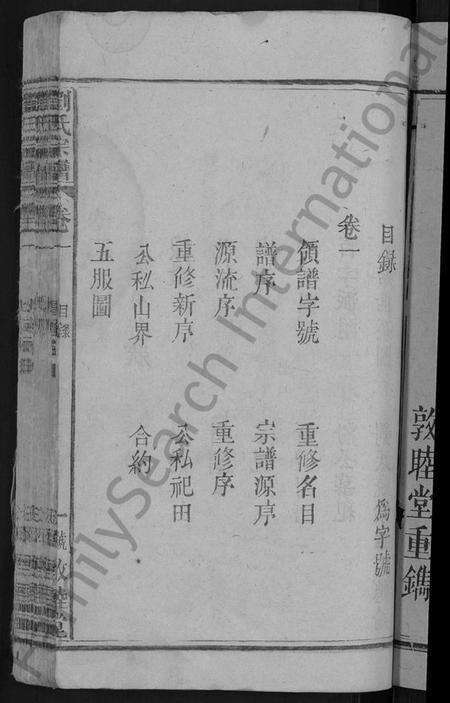 敦睦堂重鐫
目錄
爲字號
卷一
領譜字號 重修名目
譜序 宗譜源序
源流序 重修序
重修新序 公私祀田
公私山界 合約
五服圖
劉氏宗譜 卷一
目錄
FamilySearch International